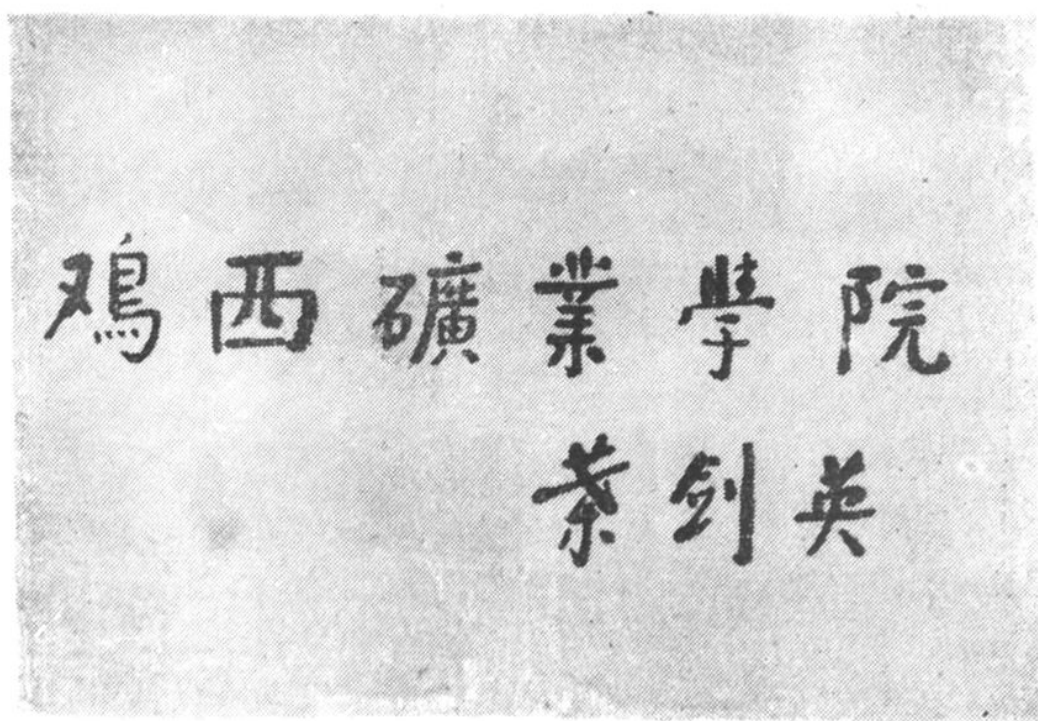 鸡西礦業學院
葉剑英